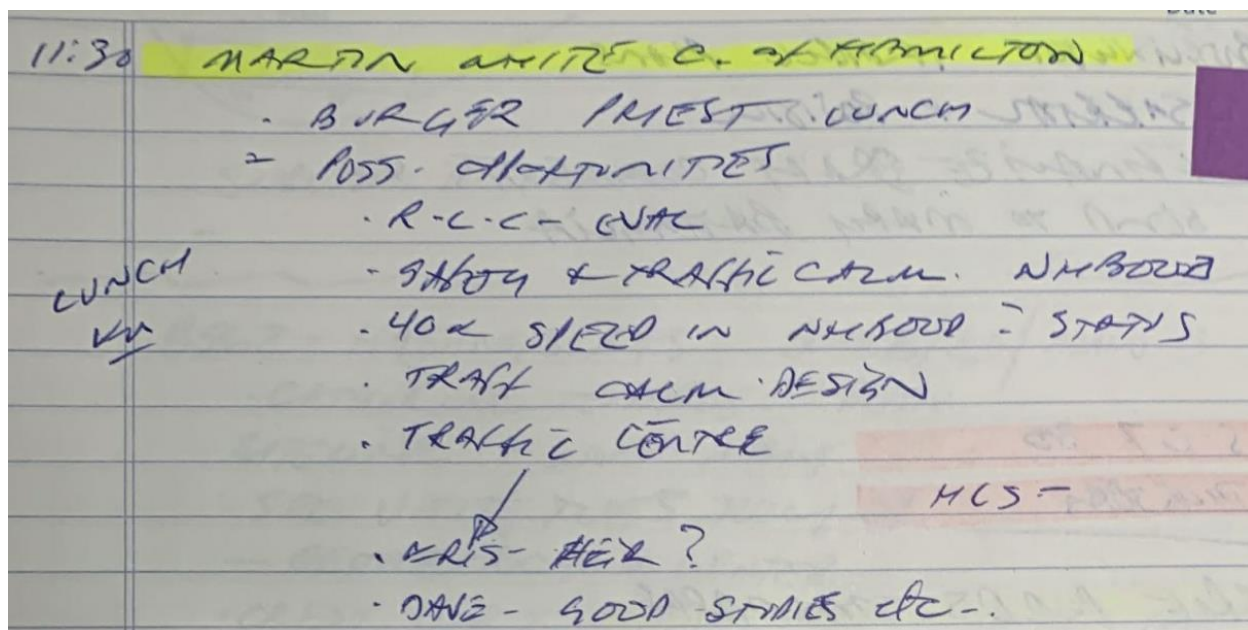 Date
11:30 MARTIN WHITE C. of HAMILTON
- BURGER PRIEST LUNCH
- POSS. OPPORTUNITIES
- R-L-C- EVAL
LUNCH - SAFETY & TRAFFIC CALM. NHBOOD
- 40K SPEED IN NHBOOD = STATUS
- TRAFF CALM. DESIGN
- TRAFFIC CENTRE
MCS -
- KRIS- ?
- DAVE - GOOD STUDIES etc -.